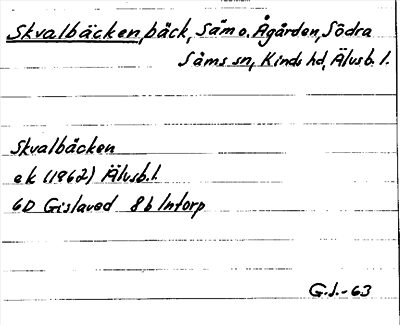 Skvalbäcken, bäck, Säm o. Ågården, Södra
Säms sn, Kinds hd, Älvsb. l.
Skvalbäcken
ek (1962) Älvsb. l.
6D Gislaved 8b Intorp
G.J.-63